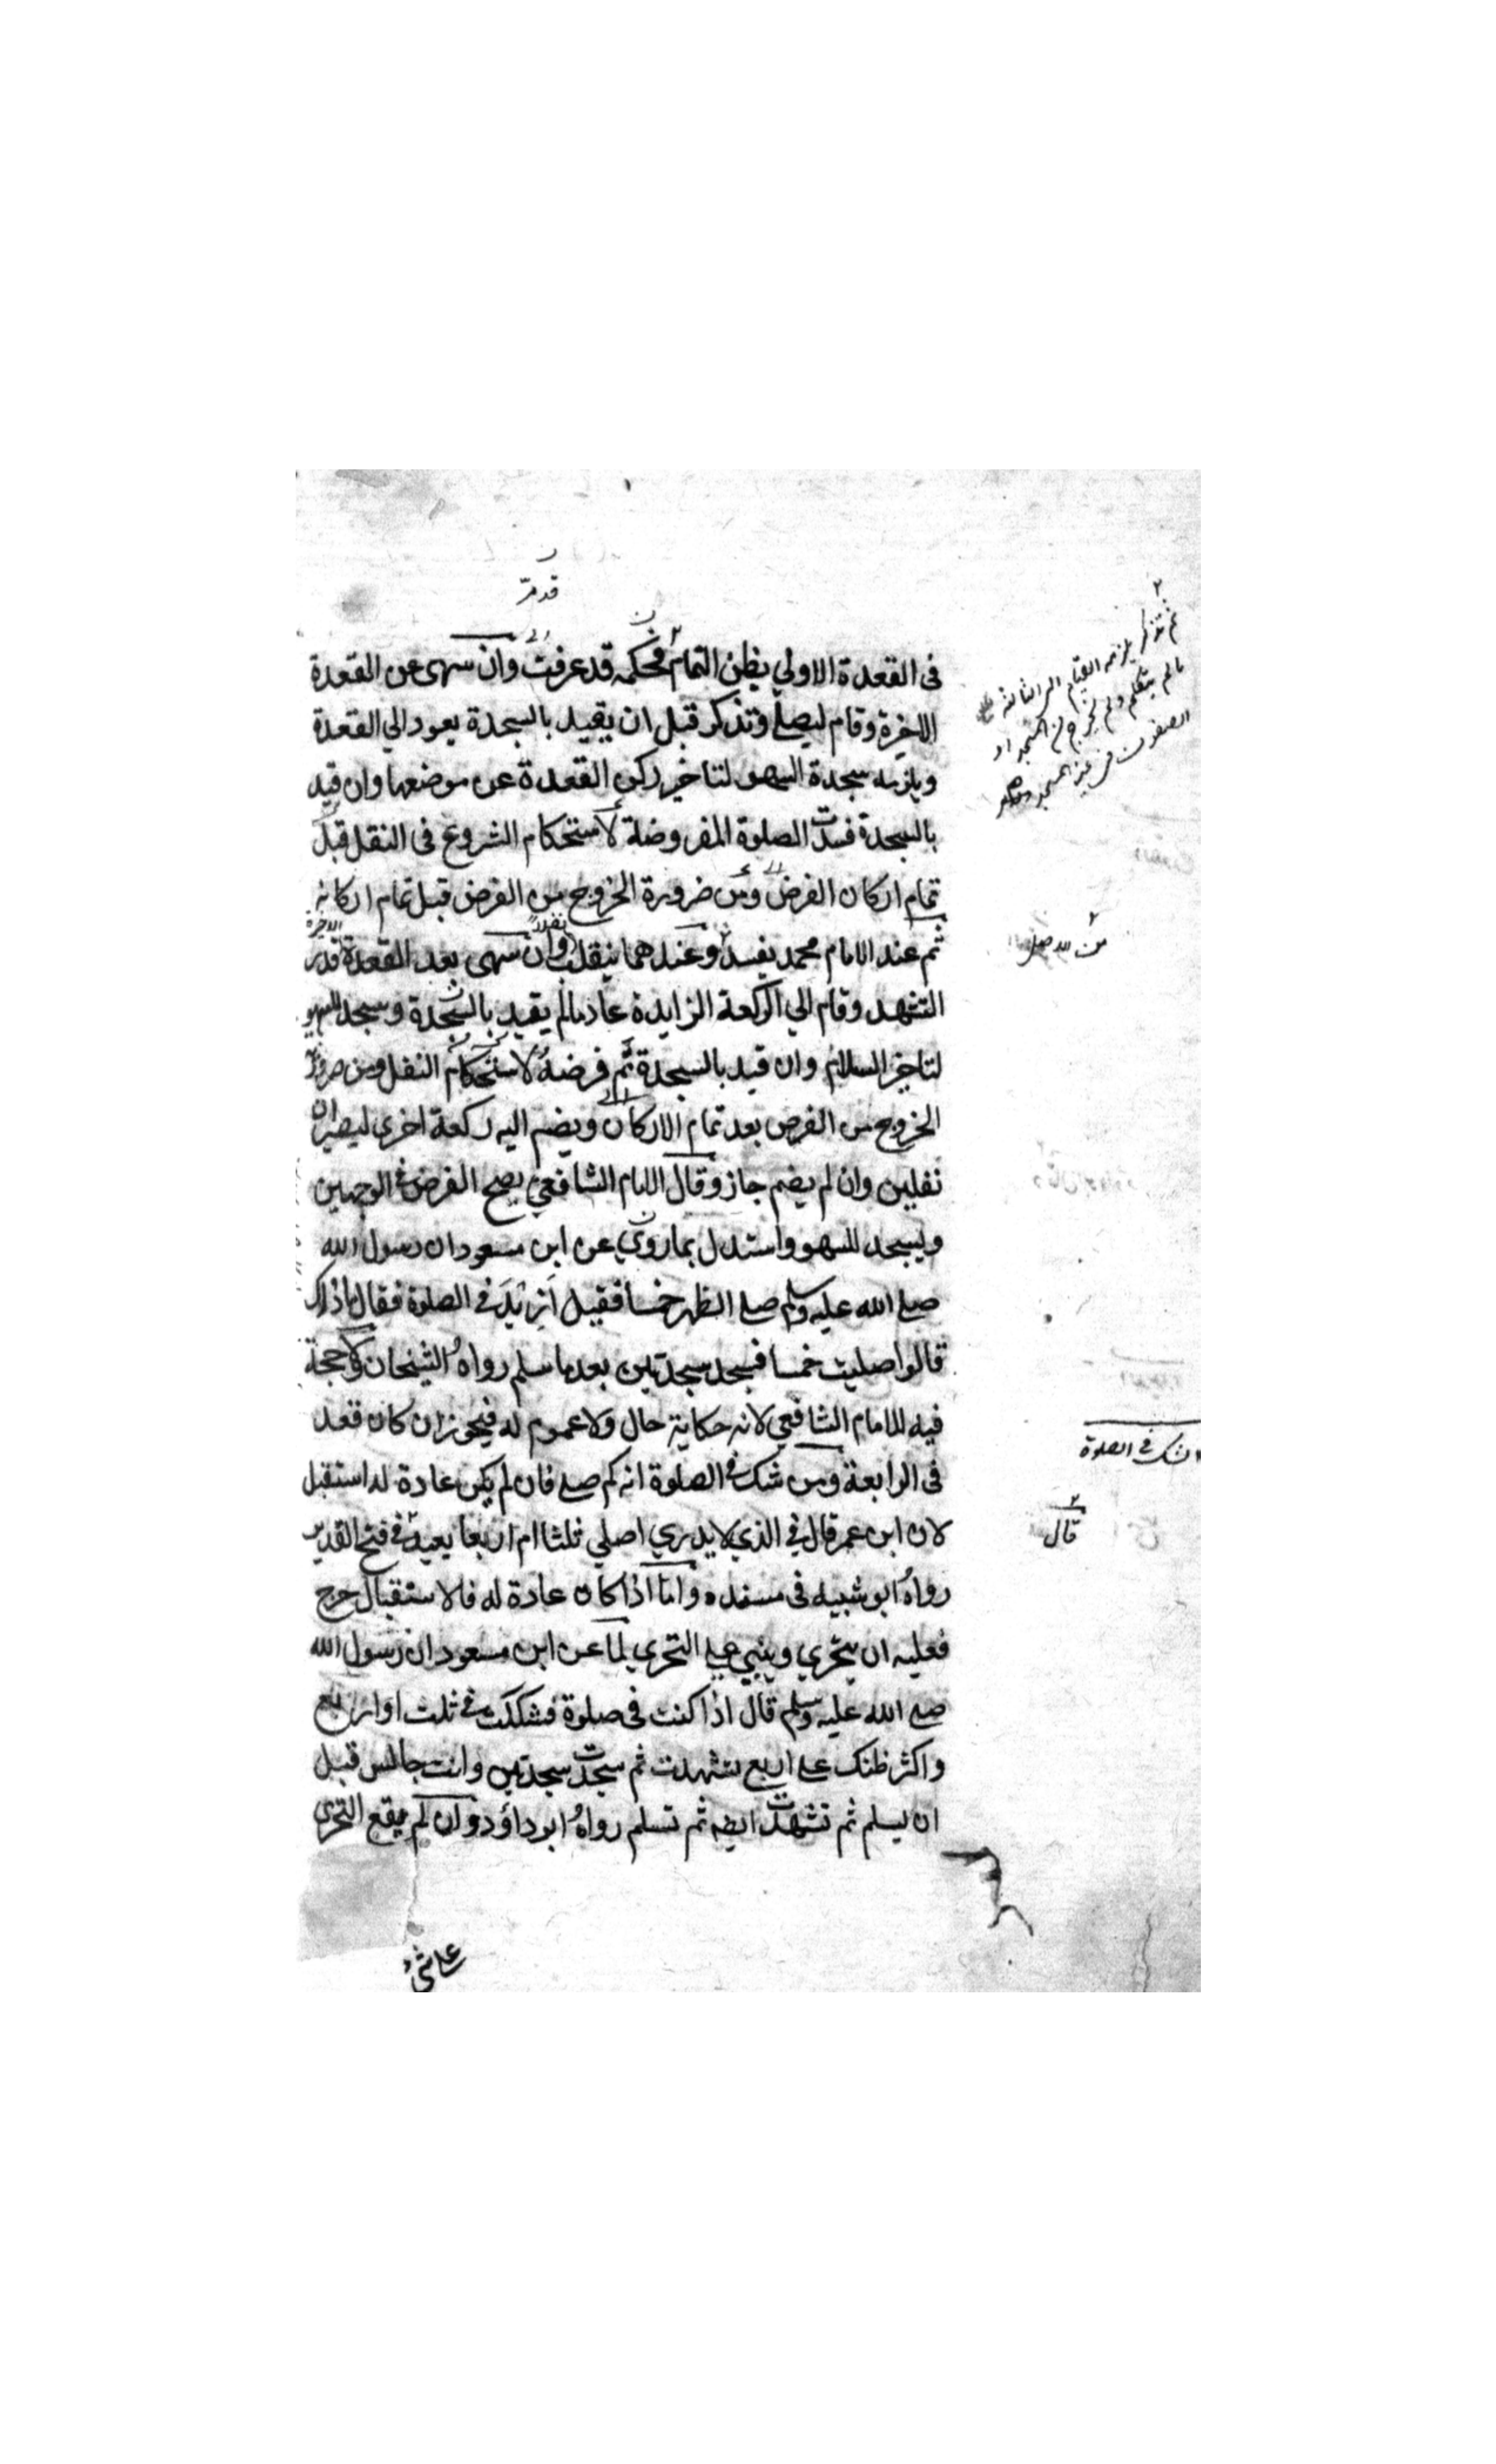 قد مرّ
فى القعدة الاولي يظن التمام فحكمه قد عرفت وان سهى عن القعدة
الاخيرة وقام ليصلے وتذكر قبل ان يقيد بالسجدة يعود الي القعدة
ويلزمه سجدة السهو لتاخير ركن القعدة عن موضعها وان قيد
بالسجدة فسدت الصلوة المفروضة لاستحكام الشروع فى النفل قبل
تمام اركان الفرض ومن ضرورة الخروج من الفرض قبل تمام اركانه
ثم عند الامام محمد يفسد وعندهما ينقلب نفلا وان سهى بعد القعدة الاخيرة قدر
التشهد وقام الي الركعة الزايدة عاد مالم يقيد بالسجدة وسجد للسهو
لتاخير السلام وان قيد بالسجدة تم فرضه لاستحكام النفل ومن ضرورة
الخروج من الفرض بعد تمام الاركان ويضم اليه ركعة اخرى ليصيران
نفلين وان لم يضم جاز وقال الامام الشافعي يصح الفرض فے الوجهين
ويسجد للسهو واستدل بما روي عن ابن مسعود ان رسول الله
صلے الله عليه وسلم صلے الظهر خمسا فقيل أزيدَ فے الصلوة فقال ما ذاك
قالوا صليت خمسا فسجد سجدتين بعد ما سلم رواهُ الشيخان ولا حجة
فيه للامام الشافعي لانه حكاية حال ولا عموم له فيجوز ان كان قعد
فى الرابعة ومن شك فے الصلوة انه كم صلے فان لم يكن عادة له استقبل
لان ابن عمر قال فے الذي لا يدري اصلي ثلثا ام اربعا يعيد فے فتح القدير
رواهُ ابو شيبه فى مسنده واما اذا كان عادة له فالاستقبال حرج
فعليه ان يتحري ويبني علے التحري لما عن ابن مسعود ان رسول الله
صلے الله عليه وسلم قال اذا كنت فى صلوة فشككت فے ثلث او اربع
واكثر ظنك علے اربع تشهدت ثم سجدت سجدتين وانت جالس قبل
ان يسلم ثم تشهدت ايضه ثم تسلم رواهُ ابو داؤد وان لم يقع التحري
ثم تذكر يلزمه القيام الى الثالثة
مالم يتكلم ولم يخرج من المسجد او
الصفوف فى غير المسجد
شك فے الصلوة
قال